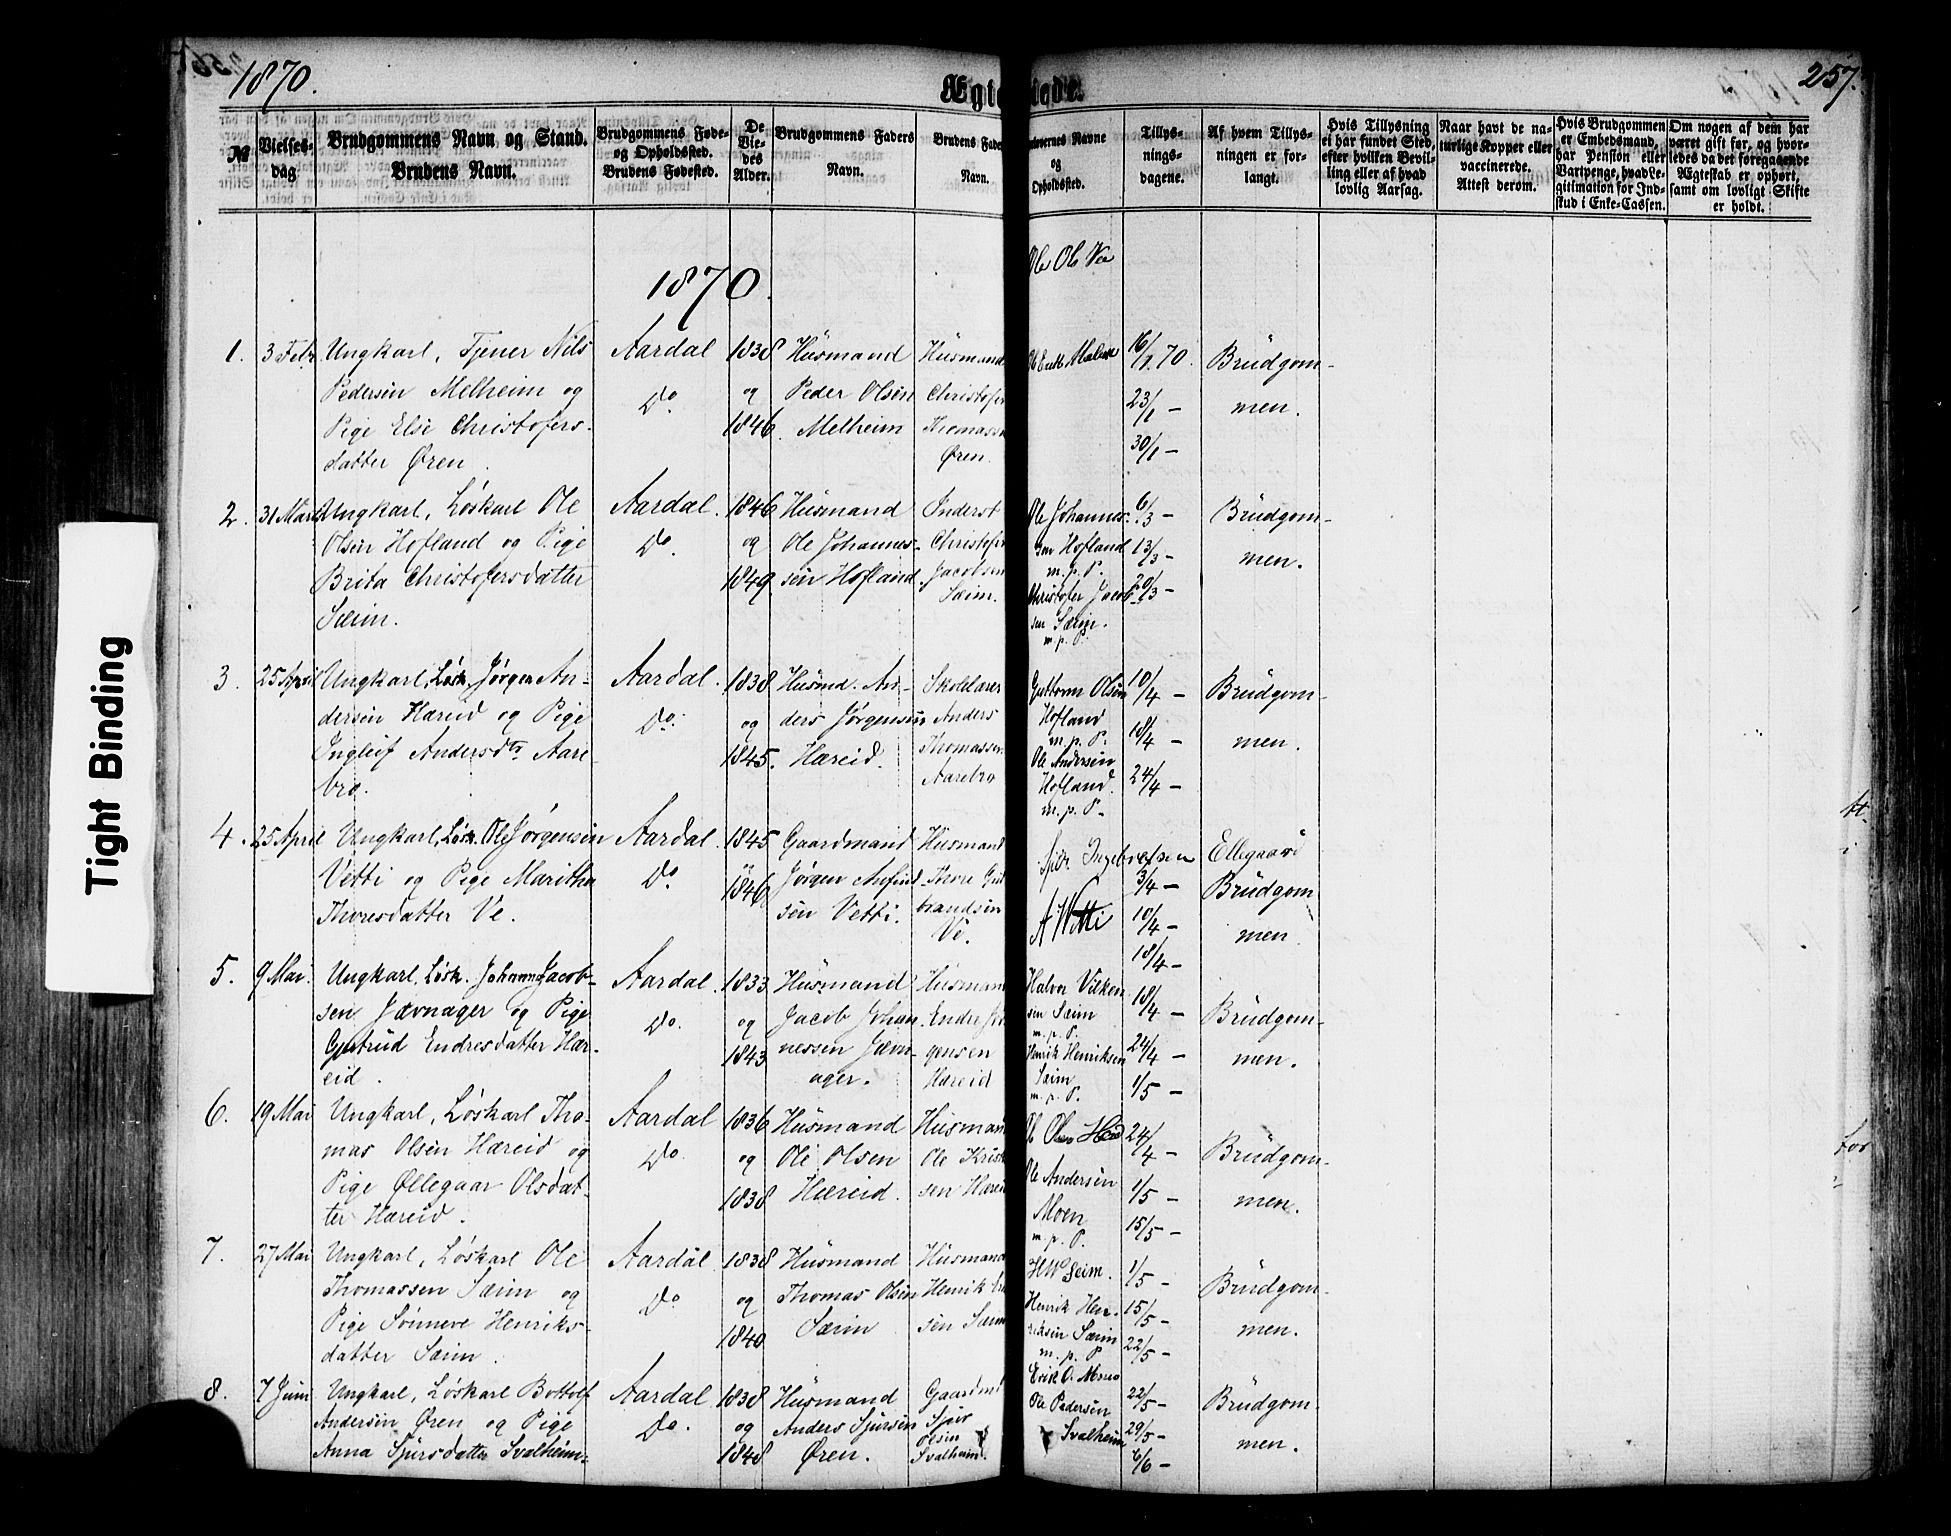 1870.
Ægte
iede.
257.
№
Vielses-
dag.
Brudgommens Navn og Stand.
Brudens Navn.
Brudgommens Føde-
og Opholdssted.
Brudens Fødested.
De
Vie-
des
Alder.
Brudgommens Faders
Navn.
Brudens Fader
Navn.
lovernes Navne
og
Opholdssted.
Tillys-
nings-
dagene.
Af hvem Tillys-
ningen er for-
langt.
Hvis Tillysning
ei har fundet Sted,
efter hvilken Bevil-
ling eller af hvad
lovlig Aarsag.
Naar havt de na-
turlige Kopper eller
vaccinerede.
Attest derom.
Hvis Brudgommen
er Embedsmand,
har Pension eller
Vartpenge, hvad Le-
gitimation for Ind-
skud i Enke-Cassen.
Om nogen af dem har
været gift før, og hvor-
ledes da det foregaaende
Ægteskab er ophørt,
samt om lovligt Skifte
er holdt.
1870.
Ole Ols Vee
1.
3 Febr
Ungkarl, Tjener Nils
Pedersen Melheim og
Pige Else Christofers-
datter Øren.
Aardal
Do.
1838
og
1846.
Husmand
Peder Olsen
Melheim
Husmand
Christofer
Thomassen
Øren.
16/1 70.
23/1 —
30/1 —
Brudgom-
men.
2.
31 Marts
Ungkarl, Løskarl Ole
Olsen Hofland og Pige
Brita Christofersdatter
Sæim.
Aardal.
Do.
1846
og
1849
Husmand
Ole Johannes-
sen Hofland.
Inderst
Christofer
Jacobsen
Sæim.
Ole Johannes-
sen Hofland
m. p. P.
Christofer Jacob-
sen Sæim.
m. p. P.
6/3 —
13/3 —
20/3 —
Brudgom-
men.
3.
25 April
Ungkarl, Løsk. Jørgen An-
dersen Hæreid og Pige
Ingleif Andersdtr Aare-
bro.
Aardal.
Do.
1838
og
1845.
Husmd. An-
ders Jørgensen
Hæreid.
Skolelærer
Anders
Thomassen
Aarebro
Guttorm Olsen
Hofland
m. p. P.
Ole Andersen
Hofland.
m. p. P.
10/4 —
18/4 —
24/4 —
Brudgom-
men.
4.
25 April
Ungkarl, Løsk. Ole Jørgensen
Vetti og Pige Maritha
Thoresdatter Ve.
Aardal.
Do.
1845
"
1846
Gaardmand
Jørgen Anfind-
sen Vetti.
Husmand
Thore Gul-
brandsen
Ve.
Ingebretsen Ellegaard
A Vetti
3/4 —
10/4 —
18/4 —
Brudgom
men
5.
9 Mai.
Ungkarl. Løsk. Johannes Jacob-
sen Jævnager og Pige
Gjertrud Endresdatter Hæ-
reid.
Aardal.
Do.
1833
og
1843
Husmand
Jacob Johan-
nessen Jævn-
ager.
Husmand
Endre Jør-
gensen
Hæreid
Halvor Vilken
sen Sæim
m. p. P.
Henrik Henriksen
Sæim
m. p. P.
18/4 —
24/4 —
1/5 —
Brudgom-
men.
6.
19 Mai
Ungkarl, Løskarl Tho-
mas Olsen Hæreid og
Pige Øllegaar Olsdat-
ter Hæreid.
Aardal
Do
1836
og
1838
Husmand
Ole Olsen
Hæreid.
Husmand
Ole Krist
sen Hæreid
Ole Andersen
Moen
m. p. P.
24/4 —
1/5 —
15/5 —
Brudgom-
men.
7.
27 Mai
Ungkarl, Løskarl Ole
Thomassen Sæim og
Pige Sønneve Henriks-
datter Sæim.
Aardal.
Do
1838
og
1840
Husmand
Thomas Olsen
Sæim
Husmand
Henrik
sen Sæim
H W Seim.
Henrik Hen-
riksen Sæim
m. p. P
1/5 —
15/5 —
22/5 —
Brudgom-
men.
8.
7 Juni
Ungkarl, Løskarl Bottolf
Andersen Øren og Pige
Anna Sjursdatter Svalheim.
Aardal
Do.
1838
og
1848
Husmand
Anders Sjursen
Øren.
Gaardmd
Sjur
Olsen
Svalheim.
Erik O. Moen
Ole Pedersen
Svalheim
22/5 —
29/5 —
6/6 —
Brudgom-
men.
for
Tight Binding